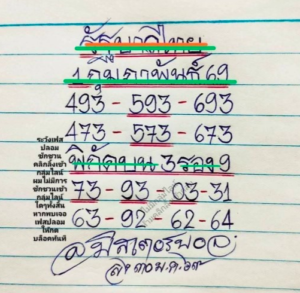 รัฐบาลไทย
1 กุมภาพันธ์ 69
493 - 593 - 693
473 - 573 - 673
พิกัดบน 3 รอง 9
73 - 93 - 03 - 31
63 - 92 - 62 - 64
ระวังเฟส
ปลอม
ชักชวน
คลิกลิ้งเข้า
กลุ่มไลน์
ผมไม่มีการ
ชักชวนเข้า
กลุ่มไลน์
ใดๆทั้งสิ้น
หากพบเจอ
เฟสปลอม
ให้กด
บล็อคทันที